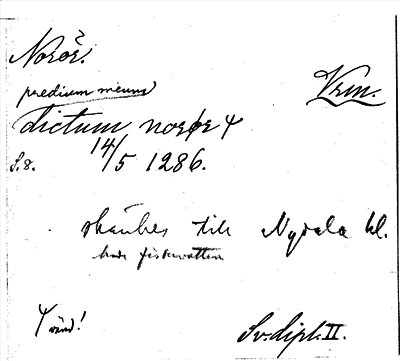 Norör?
Vrm.
predium meum
dictum norør 4
S.8. 14/5 1286.
skänkes till Nydala kl.
fiskevatten
vänd!
Sv. dipl. II.